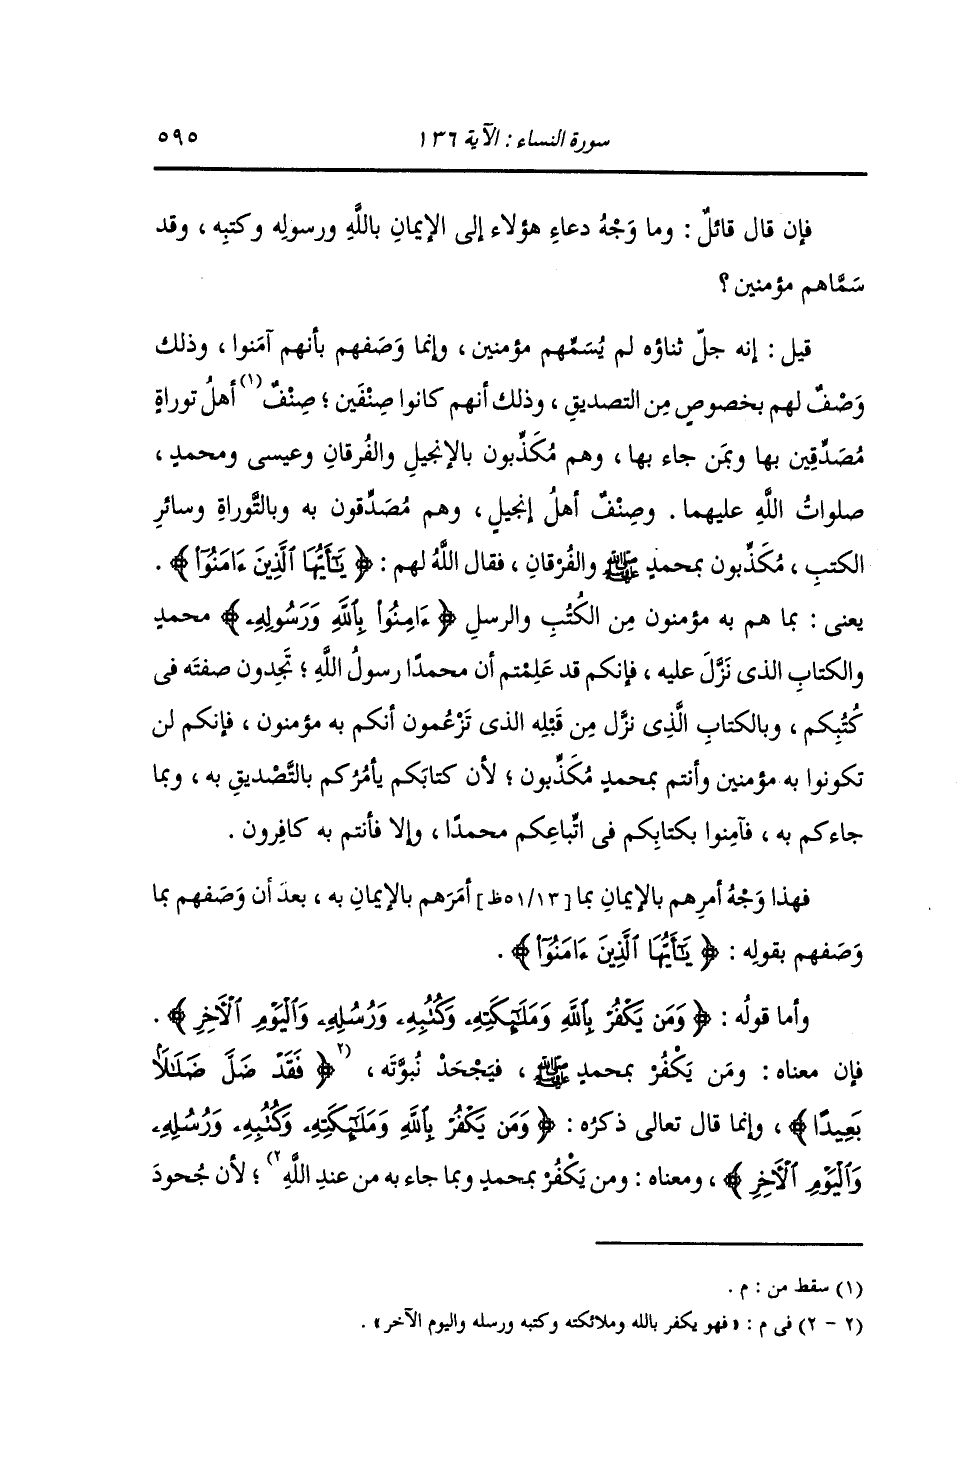 سورة النساء : الآية ١٣٦ ٥٩٥
فإن قال قائلٌ : وما وَجْهُ دعاءِ هؤلاء إلى الإيمانِ باللَّهِ ورسولِه وكتبِه ، وقد
سَمَّاهم مؤمنين ؟
قيل : إنه جلّ ثناؤه لم يُسَمِّهم مؤمنين ، وإنما وَصَفهم بأنهم آمَنوا ، وذلك
وَصْفٌ لهم بخصوصٍ مِن التصديقِ ، وذلك أنهم كانوا صِنْفَين ؛ صِنْفٌ (١) أهلُ توراةٍ
مُصَدِّقِين بها وبمَن جاء بها ، وهم مُكَذِّبون بالإنجيلِ والفُرقانِ وعيسى ومحمدٍ ،
صلواتُ اللَّهِ عليهما . وصِنْفٌ أهلُ إنجيلٍ ، وهم مُصَدِّقون به وبالتَّوراةِ وسائرِ
الكتبِ ، مُكَذِّبون بمحمدٍ ﷺ والفُرْقانِ ، فقال اللَّهُ لهم : ﴿ يَٰٓأَيُّهَا ٱلَّذِينَ ءَامَنُوٓا۟ ﴾ .
يعنى : بما هم به مؤمنون مِن الكُتُبِ والرسلِ ﴿ ءَامِنُوا۟ بِٱللَّهِ وَرَسُولِهِۦ ﴾ محمدٍ
والكتابِ الذى نَزَّلَ عليه ، فإنكم قد عَلِمْتم أن محمدًا رسولُ اللَّهِ ؛ تَجِدون صفتَه فى
كُتُبِكم ، وبالكتابِ الَّذِى نزَّل مِن قَبْلِه الذى تَزْعُمون أنكم به مؤمنون ، فإنكم لن
تكونوا به مؤمنين وأنتم بمحمدٍ مُكَذِّبون ؛ لأن كتابَكم يأمُرُكم بالتَّصْديقِ به ، وبما
جاءكم به ، فآمِنوا بكتابِكم فى اتِّباعِكم محمدًا ، وإلا فأنتم به كافِرون .
فهذا وَجْهُ أمرِهم بالإيمانِ بما [٥١/١٣ظ] أمَرَهم بالإيمانِ به ، بعدَ أن وَصَفهم بما
وَصَفهم بقولِه : ﴿ يَٰٓأَيُّهَا ٱلَّذِينَ ءَامَنُوٓا۟ ﴾ .
وأما قولُه : ﴿ وَمَن يَكْفُرْ بِٱللَّهِ وَمَلَٰٓئِكَتِهِۦ وَكُتُبِهِۦ وَرُسُلِهِۦ وَٱلْيَوْمِ ٱلْءَاخِرِ ﴾ .
فإن معناه : ومَن يَكْفُرْ بمحمدٍ ﷺ ، فيَجْحَدْ نُبوَّتَه ، (٢ ﴿ فَقَدْ ضَلَّ ضَلَٰلًۢا
بَعِيدًا ﴾ ، وإنما قال تعالى ذكرُه : ﴿ وَمَن يَكْفُرْ بِٱللَّهِ وَمَلَٰٓئِكَتِهِۦ وَكُتُبِهِۦ وَرُسُلِهِۦ
وَٱلْيَوْمِ ٱلْءَاخِرِ ﴾ ، ومعناه : ومن يَكْفُرْ بمحمدٍ وبما جاء به من عندِ اللَّهِ ٢) ؛ لأن جُحودَ
(١) سقط من : م .
(٢ - ٢) فى م : «فهو يكفر بالله وملائكته وكتبه ورسله واليوم الآخر» .